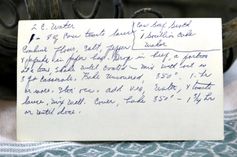 2 C. Water
1 - 8 oz can tomato sauce
1 can beef broth
1 bouillon cube
water
Combine flour, salt, pepper
& paprika in paper bag. Drop in beef, a portion
at a time, shake until coated - mix with
in casserole. Bake uncovered, 350° - 1 hr
or more. Stir once. add veg, water, & tomato
sauce, mix well. Cover, bake 350° - 1 3/4 hr
or until done.